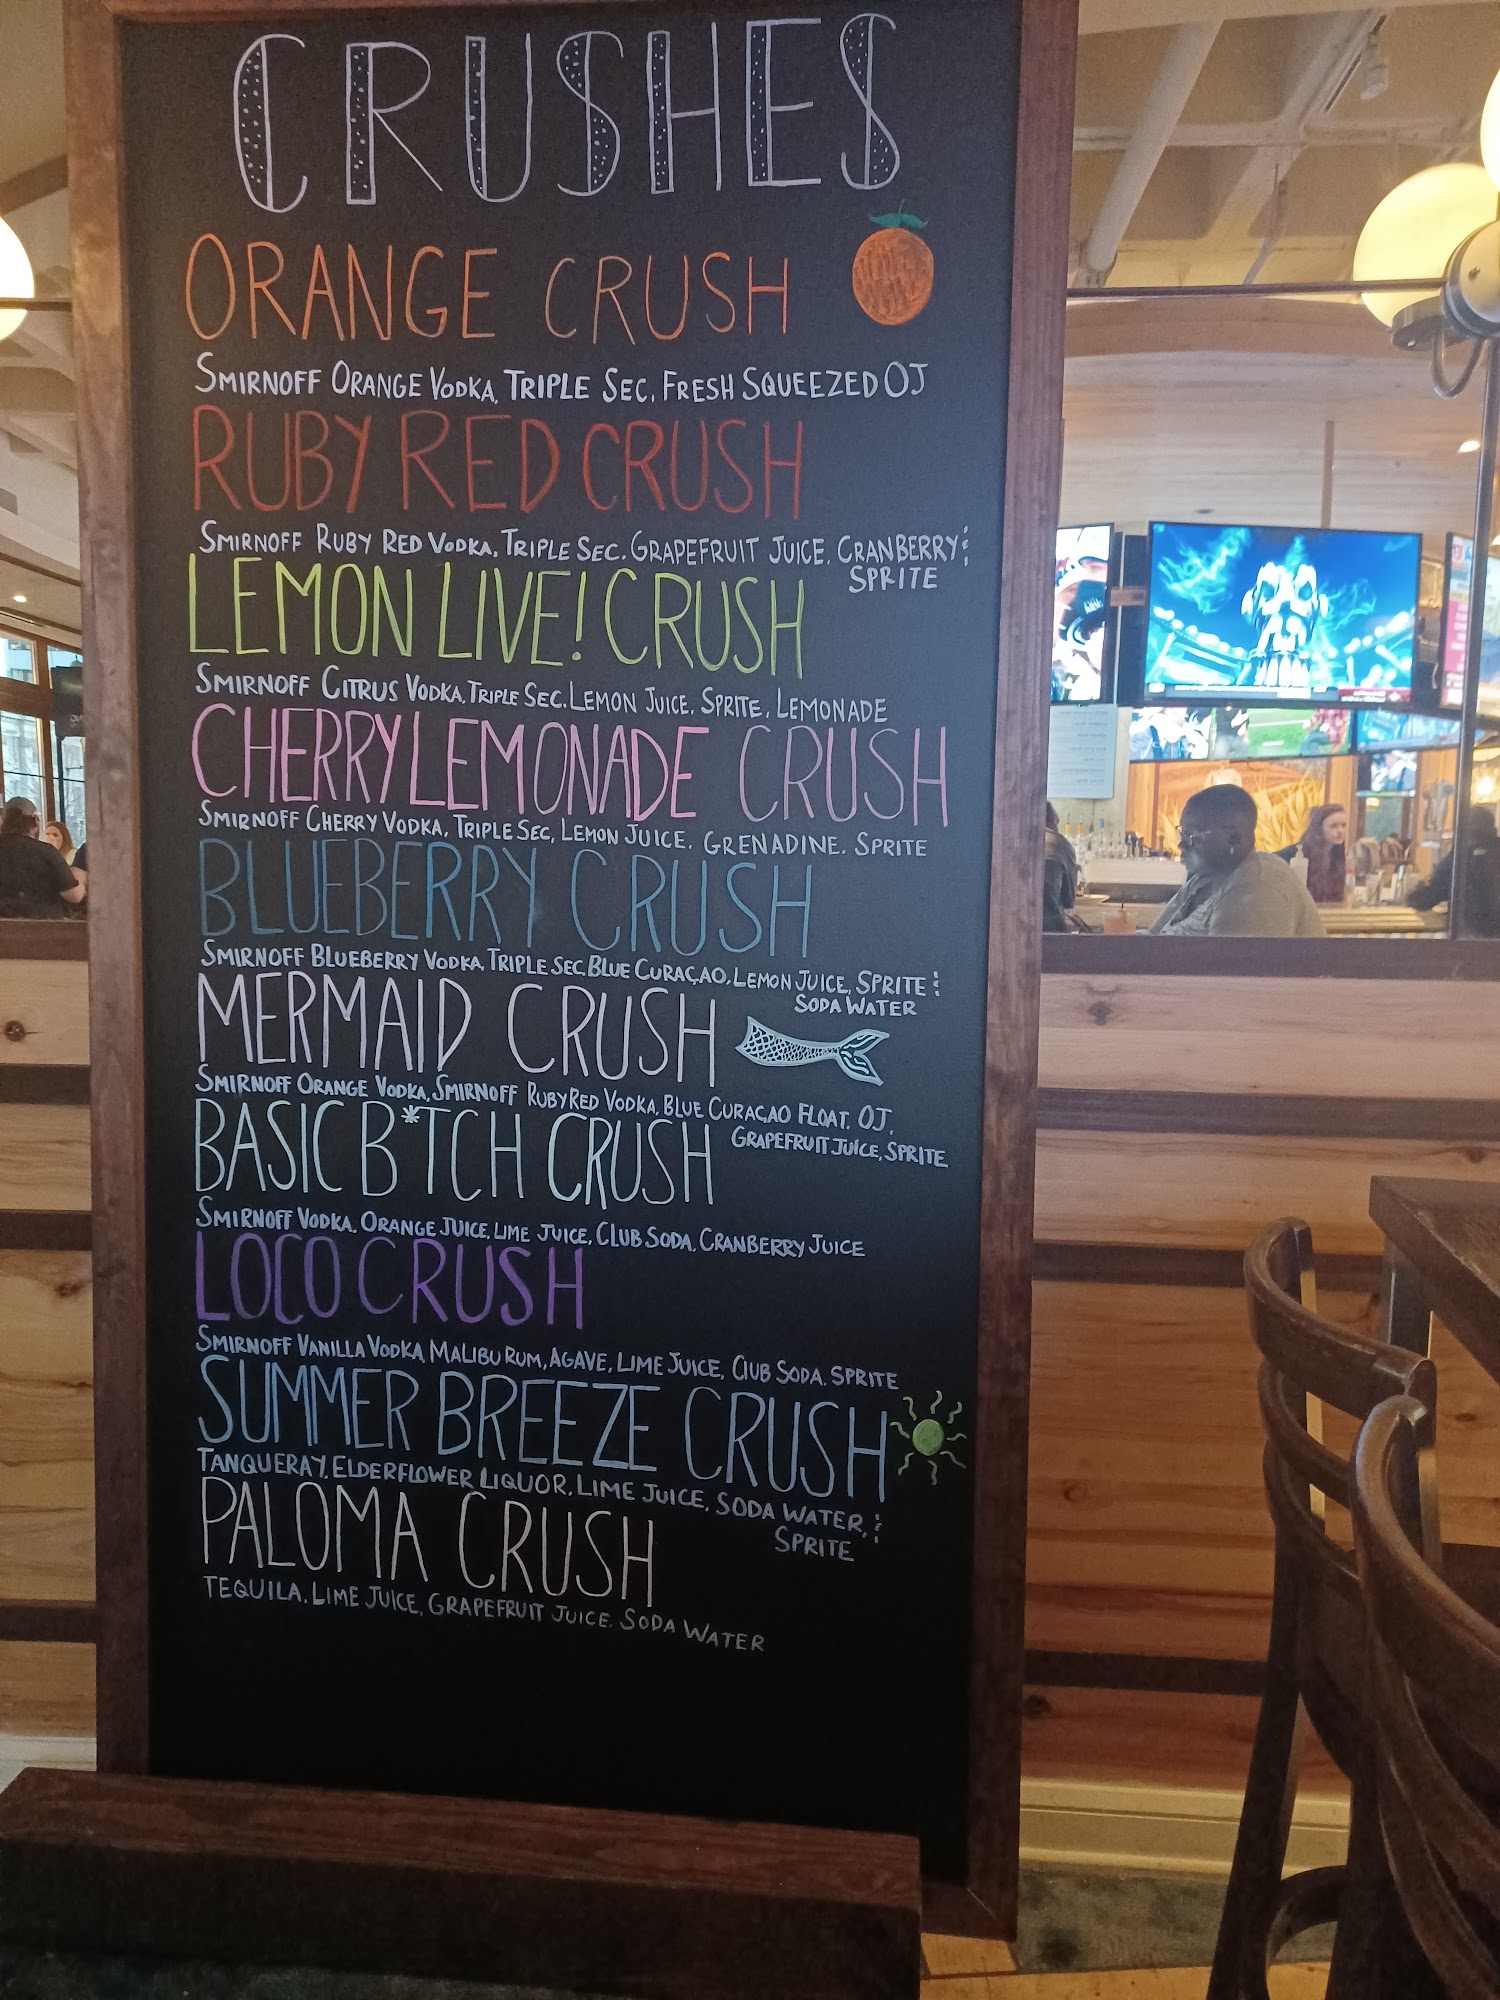 CRUSHES
ORANGE CRUSH
SMIRNOFF ORANGE VODKA, TRIPLE SEC, FRESH SQUEEZED OJ
RUBY RED CRUSH
SMIRNOFF RUBY RED VODKA, TRIPLE SEC. GRAPEFRUIT JUICE. CRANBERRY &
SPRITE
LEMON LIVE! CRUSH
SMIRNOFF CITRUS VODKA, TRIPLE SEC. LEMON JUICE. SPRITE, LEMONADE
CHERRY LEMONADE CRUSH
SMIRNOFF CHERRY VODKA, TRIPLE SEC, LEMON JUICE. GRENADINE. SPRITE
BLUEBERRY CRUSH
SMIRNOFF BLUEBERRY VODKA, TRIPLE SEC, BLUE CURAÇAO, LEMON JUICE, SPRITE &
SODA WATER
MERMAID CRUSH
SMIRNOFF ORANGE VODKA, SMIRNOFF RUBY RED VODKA, BLUE CURAÇAO FLOAT. OJ,
GRAPEFRUIT JUICE, SPRITE
BASIC B*TCH CRUSH
SMIRNOFF VODKA, ORANGE JUICE, LIME JUICE, CLUB SODA, CRANBERRY JUICE
LOCO CRUSH
SMIRNOFF VANILLA VODKA, MALIBU RUM, AGAVE, LIME JUICE, CLUB SODA. SPRITE
SUMMER BREEZE CRUSH
TANQUERAY, ELDERFLOWER LIQUOR, LIME JUICE, SODA WATER, &
SPRITE
PALOMA CRUSH
TEQUILA, LIME JUICE, GRAPEFRUIT JUICE. SODA WATER